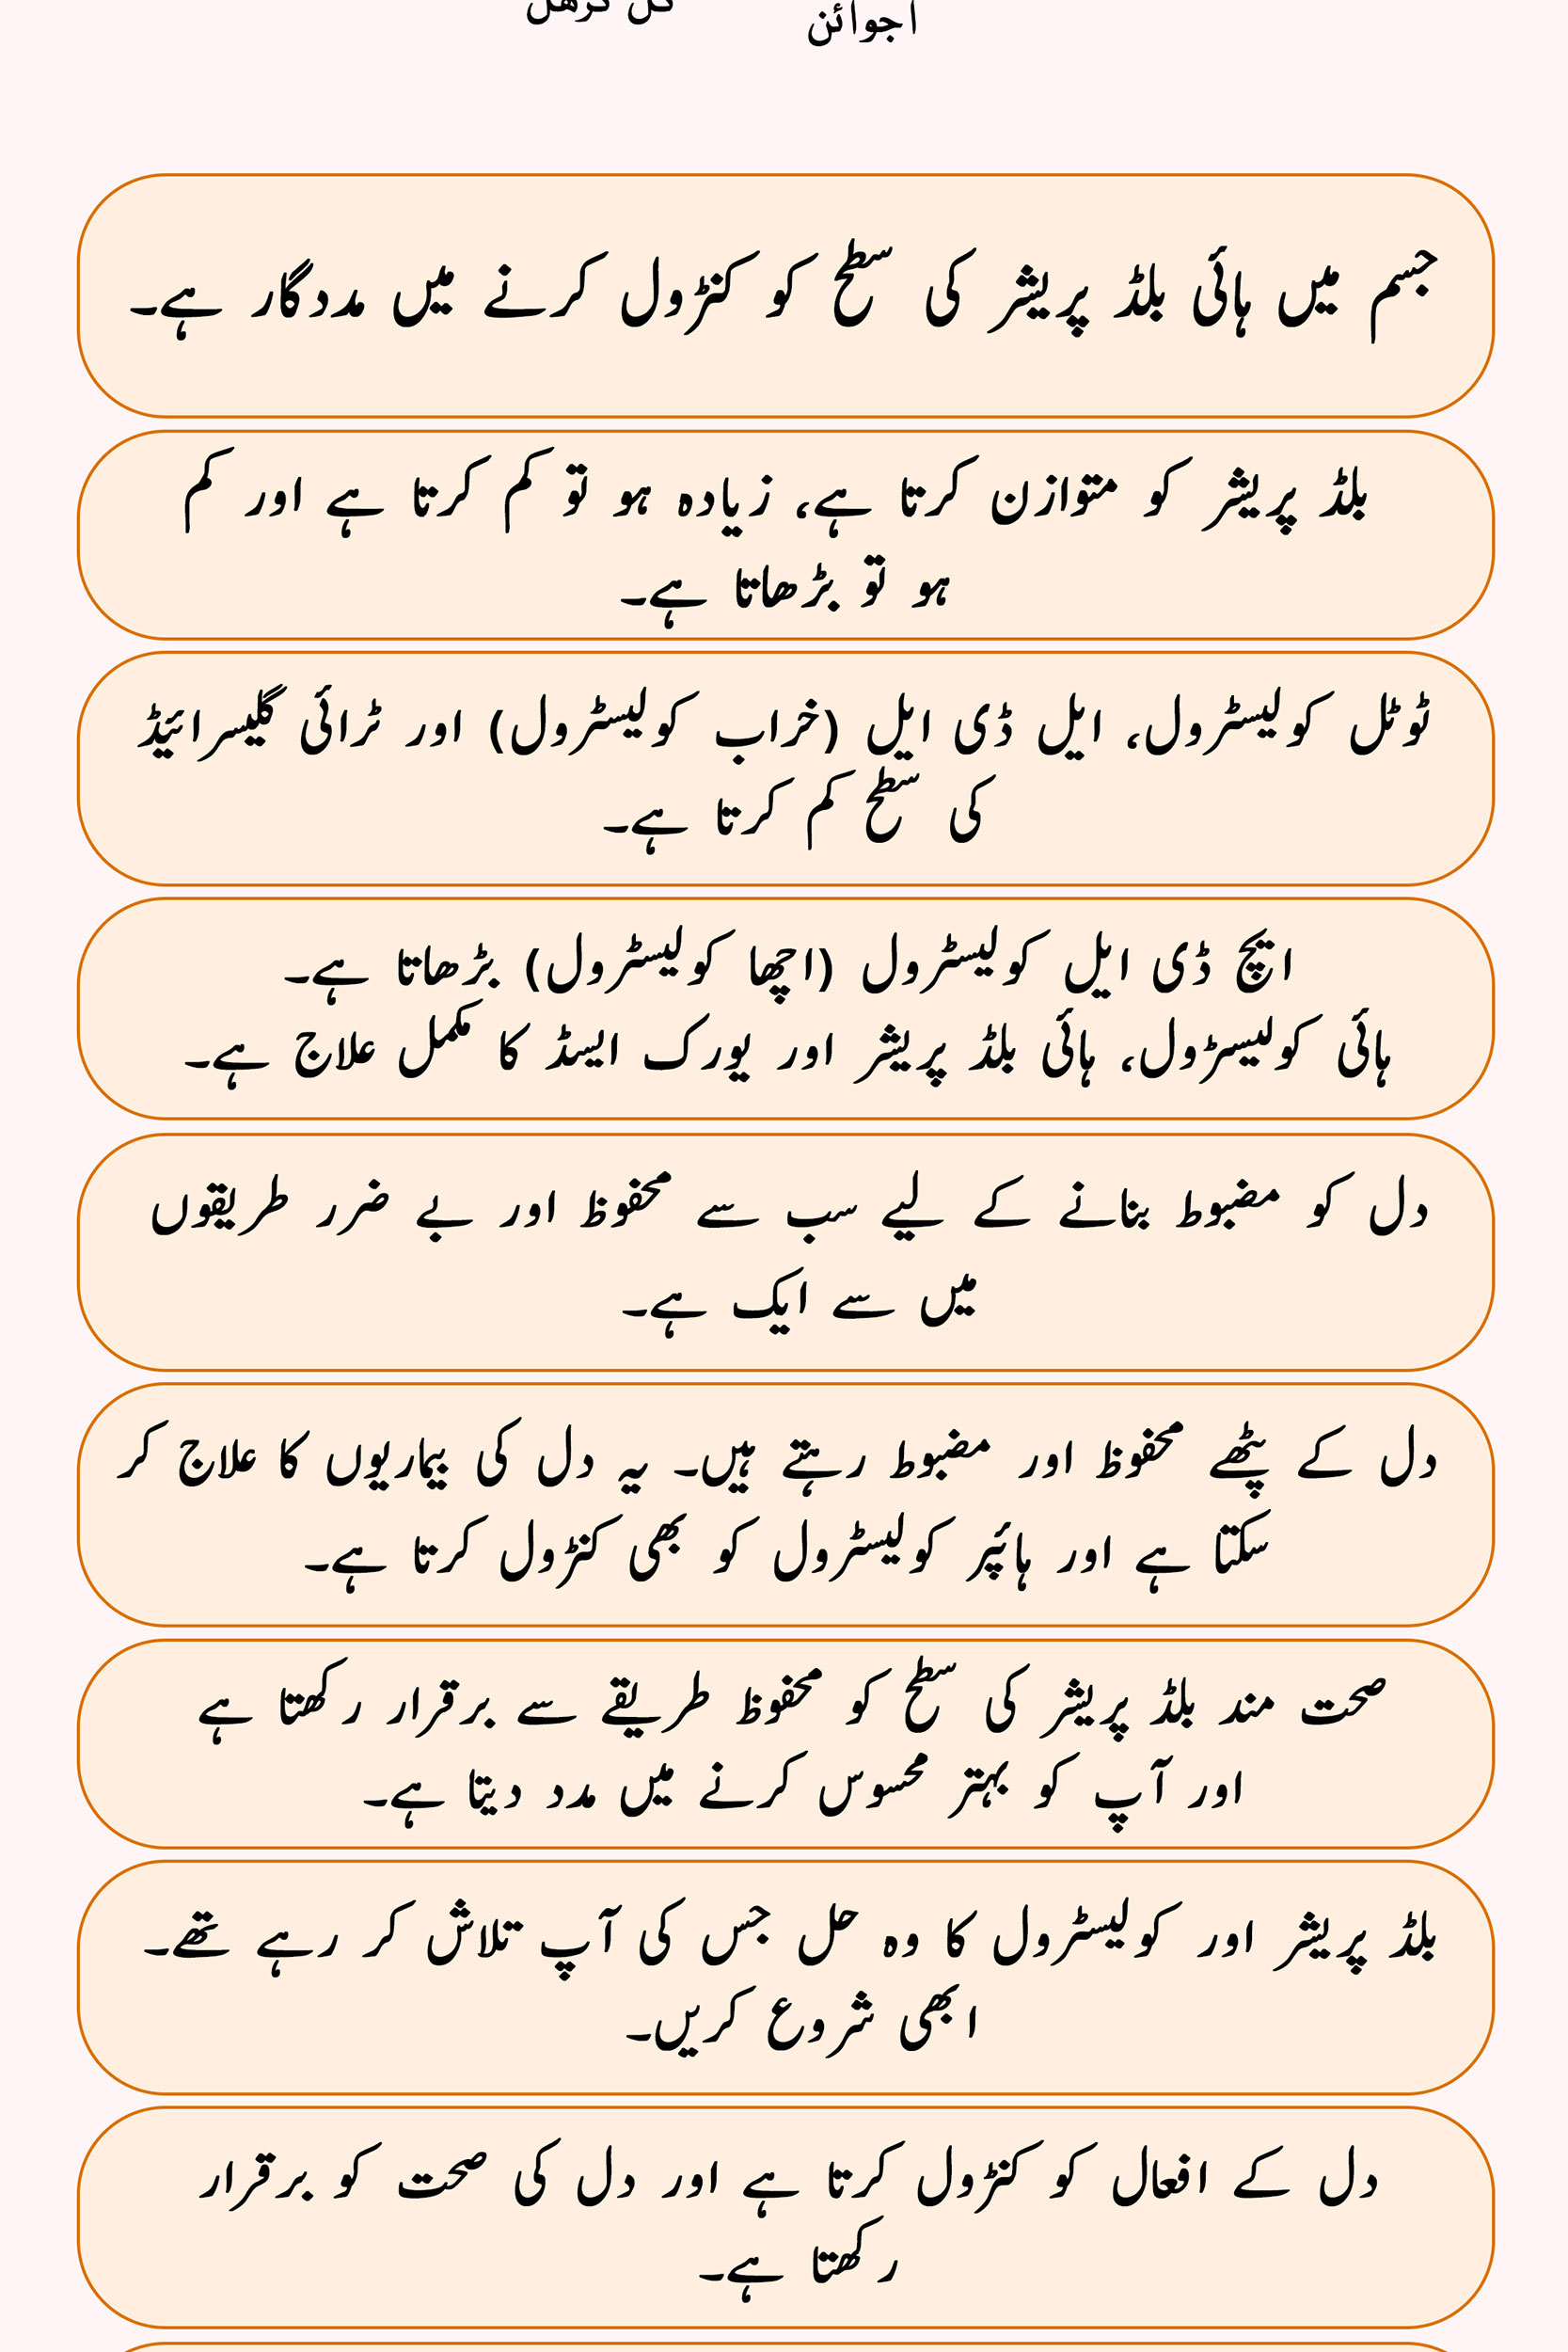 اجوائن
جسم میں ہائی بلڈ پریشر کی سطح کو کنٹرول کرنے میں مددگار ہے۔
بلڈ پریشر کو متوازن کرتا ہے، زیادہ ہو تو کم کرتا ہے اور کم
ہو تو بڑھاتا ہے۔
ٹوٹل کولیسٹرول، ایل ڈی ایل (خراب کولیسٹرول) اور ٹرائی گلیسرائیڈ
کی سطح کم کرتا ہے۔
ایچ ڈی ایل کولیسٹرول (اچھا کولیسٹرول) بڑھاتا ہے۔
ہائی کولیسڑول، ہائی بلڈ پریشر اور یورک ایسڈ کا مکمل علاج ہے۔
دل کو مضبوط بنانے کے لیے سب سے محفوظ اور بے ضرر طریقوں
میں سے ایک ہے۔
دل کے پٹھے محفوظ اور مضبوط رہتے ہیں۔ یہ دل کی بیماریوں کا علاج کر
سکتا ہے اور ہائپر کولیسٹرول کو بھی کنٹرول کرتا ہے۔
صحت مند بلڈ پریشر کی سطح کو محفوظ طریقے سے برقرار رکھتا ہے
اور آپ کو بہتر محسوس کرنے میں مدد دیتا ہے۔
بلڈ پریشر اور کولیسٹرول کا وہ حل جس کی آپ تلاش کر رہے تھے۔
ابھی شروع کریں۔
دل کے افعال کو کنٹرول کرتا ہے اور دل کی صحت کو برقرار
رکھتا ہے۔